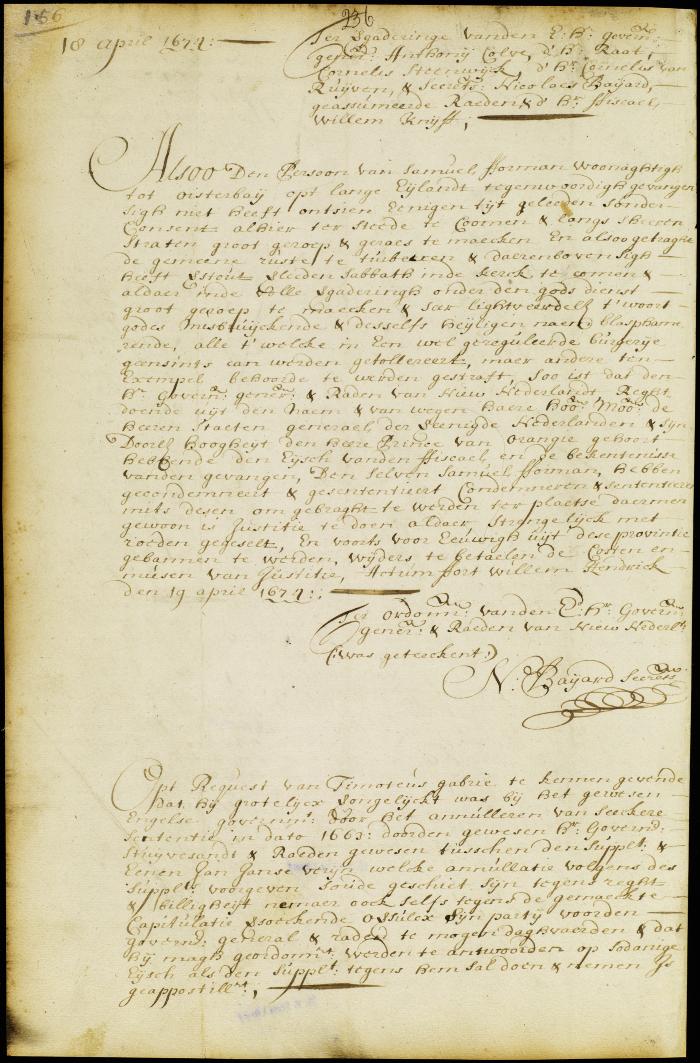 156
236
18 april 1674:
Ter Vgaderinge vanden E: Hr. Govern:
gener: Anthonij Colve, d'Hr. Raat,
Cornelis Steenwijck, d' Hr. Cornelis van
Ruijven, & Secrets: Nicolaes Baijard,
geassumeerde Raeden, & d' Hr. ffiscael,
Willem Knijff;
Alsoo Den Persoon van Samuel fforman woonaghtigh
tot oisterbaij opt lange Eijlandt tegenwoordigh gevangen
sigh niet heeft ontsien Eenigen tijt geleeden sonder
Consent alhier ter steede te Coomen & langs sheeren
Straten groot geroep & geraes te maecken En alsoo getraght
de gemeene ruste te turberen & daerenboven sigh
heeft Vstout Vleden Sabbath inde kerck te comen &
aldaer inde volle Vgaderingh onder den gods dienst
groot geroep te maecken & seer lightveerdelk t'woort
godes misbruijckende & desselfs heijligen naem blasphame
rende, alle t'welcke in Een wel gereguleerde burgerije
geensints can werden getollereert, maer andere ten
Exempel behoorde te werden gestraft, Soo ist dat den
Hr. Govern: gener: & Raden van Nieuw Nederlandt, Reght
doende uijt den Naem & van wegen haere Hoo: Moo: de
Heeren Staeten generael der Veenigde Nederlanden & sijn
Doorle Hoogheijt den heere Prince van orangie gehoort
hebbende den Eijsch vanden ffiscael, en de bekentenisse
vanden gevangen, Den selven Samuel fforman, hebben
gecondemneert & gesententieert Condemneren & sententieren
mits desen om gebraght te werden ter plaetse daermen
gewoon is Justitie te doen aldaer Strengelijck met
roeden gegeselt, En voorts voor Eeuwigh uijt dese provintie
gebannen te werden, wijders te betaelen de Costen en
misen van Justitie, Actum ffort willem Hendrick
den 19 april 1674:
Ter ordonn: vanden E: Hr. Govern:
gener: & Raeden van Nieuw Nederlt:
(: Was geteeckent:)
N: Baijard Secrets
Opt Request van Timoteus gabrie te kennen gevende
dat hij grotelijcx Vongelijckt was bij het gewesen
Engelse governm: door het annulleren van seeckere
Sententie in dato 1663: door den gewesen Hr. Govern:
Stuijvesandt & Raeden gewesen tusschen den Supplt: &
Eenen Jan Janse verijn welcke annullatie volgens des
Supplts voorgeven soude geschiet sijn tegens reght
& billigheijt nemaer oock selfs tegens de gemaeckte
Capitulatie Vsoeckende oVsulcx sijn partij voorden
govern: general & raden te mogen daghvaerden & dat
hij magh geordonnt: werden te antwoorden op sodanige
Eijsch als den Supplt: tegens hem sal doen & nemen Is
geappostillt:,